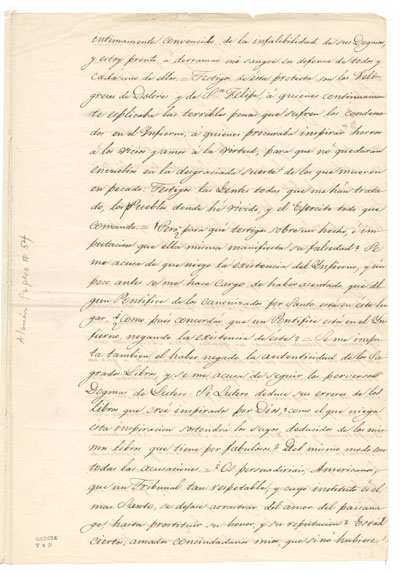 intimamente convencido de la infalibilidad de sus Dogmas,
y estoy pronto á derramar mi sangre en defensa de todos y
cada uno de ellos. = Testigos de esta protesta son los Feli-
greses de Dolores y de Sn. Felipe, á quienes continuamen-
te esplicaba las terribles penas que sufren los condena-
dos en el Infierno, á quienes procuraba inspirar horror
á los vicios y amor á la virtud, para que no quedaran
envueltos en la desgraciada suerte de los que mueren
en pecado: Testigos las Gentes todas que me han trata-
do, los Pueblos donde he vivido, y el Ejercito todo que
comando. = ¿Pero para qué testigos sobre un hecho, é im-
putacion que ella misma manifiesta su falsedad? Se
me acusa de que niego la existencia del Infierno, y un
poco antes se me hace cargo de haber asentado, que al-
gun Pontifice de los canonizados por Santo está en este lu-
gar. ¿Como pues concordar que un Pontifice está en el In-
fierno, negando la existencia de este? = Se me impu-
ta tambien el haber negado la autenticidad de los Sa-
grados Libros, y se me acusa de seguir los perversos
Dogmas de Lutero. Si Lutero deduce sus errores de los
libros que creé inspirados por Dios, ¿como el que niega
esta inspiracion sostendrá los suyos deducidos de los mis-
mos libros que tiene por fabulosos? Del mismo modo son
todas las acusaciones. = ¿Os persuadiriais, Americanos,
que un Tribunal tan respetable, y cuyo instituto és el
mas Santo, se dejase arrastrar del amor del paisana-
ge, hasta prostituir su honor, y su reputacion? Estad
ciertos, amados conciudadanos mios, que si no hubiese
Alamán Papers # 54
GARCIA